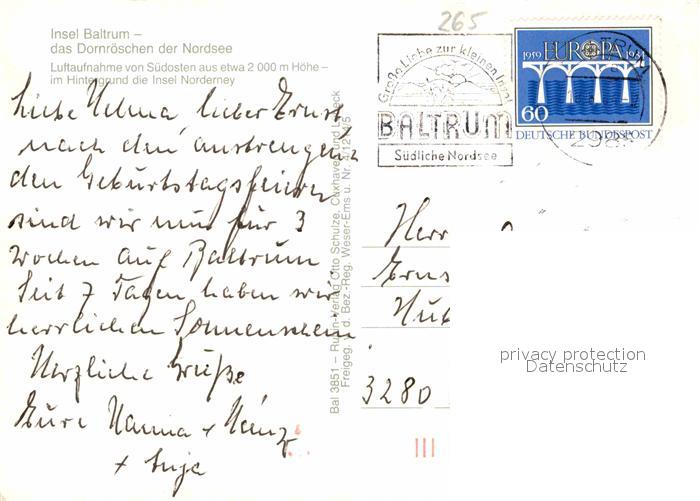 265
Insel Baltrum –
das Dornröschen der Nordsee
Luftaufnahme von Südosten aus etwa 2 000 m Höhe –
im Hintergrund die Insel Norderney
Große Liebe zur kleinen Insel
BALTRUM
Südliche Nordsee
1959 EUROPA 1984
60
DEUTSCHE BUNDESPOST
Liebe Helma lieber Ernst
nach den anstrengen
den Geburtstagsfeiern
sind wir nun für 3
Wochen auf Baltrum
Seit 7 Tagen haben wir
herrlichen Sonnenschein
Herzliche Grüße
Eure Hanna + Heinz
+ Anja
Bal 3851 – Rubin-Verlag Otto Schulze, Cuxhaven und Lübeck
Freigeg. v. d. Bez.-Reg. Weser-Ems u. Nr.
Herr
Erns
Hub
3280
privacy protection
Datenschutz